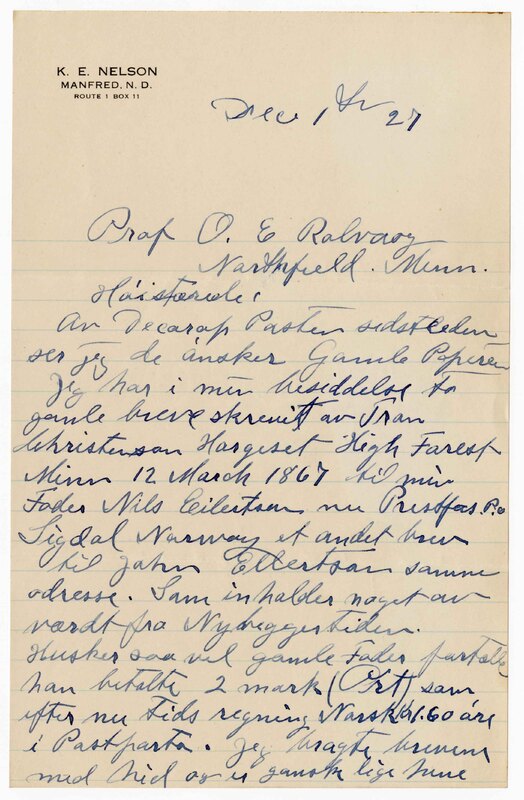 K. E. NELSON
MANFRED, N. D.
ROUTE 1 BOX 11
Dec 1 27
Prof O. E Rolvaag
Northfield. Minn.
Høistærede!
Av Decorap Posten sidstleden
ser jeg de ånsker Gamle Papiren
Jeg har i min besiddelse to
gamle breve skrevit av Iran
Christenson Hargeset High Forest
Minn 12 March 1867 til min
Fader Nils Eilertsen nu Prestfos. P.o
Sigdal Norway et andet brev
til John Ellertson samme
adresse. Som inholder noget av
værdt fra Nybyggertiden.
Husker saa vel gamle Fader fortalte
han betalte 2 mark (Ort) som
efter nu tids regning Norsk 1.60 åre
i Postporto. Jeg bragte brevene
med hid og er ganske lige